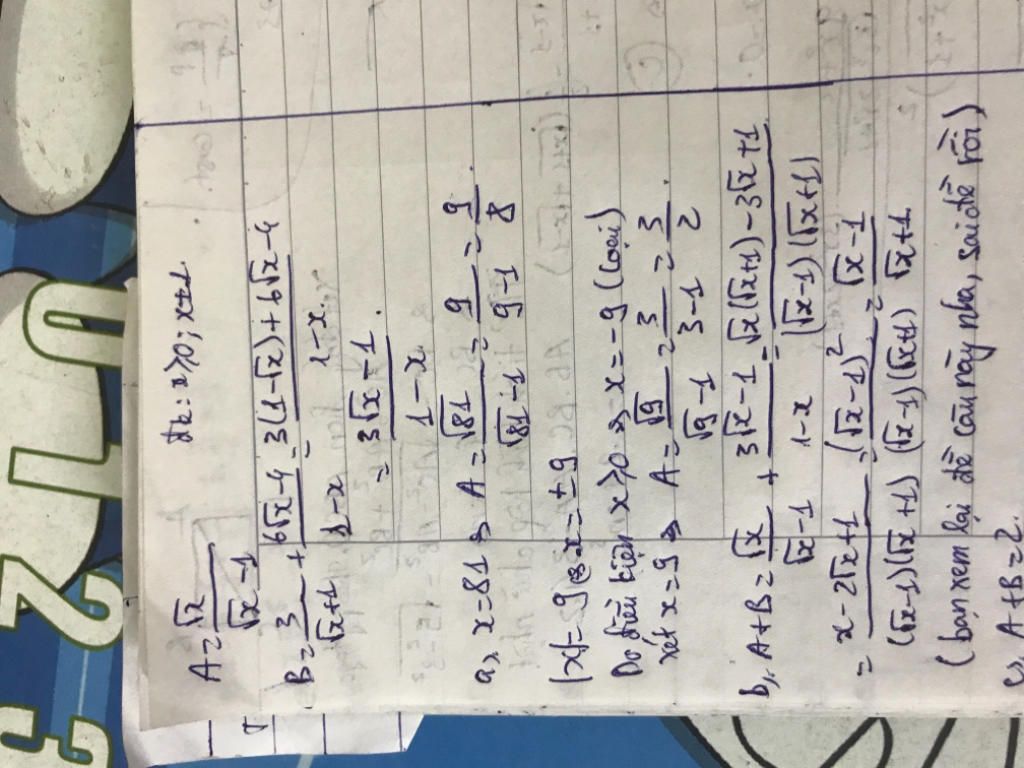 A = √x / (√x - 1) đk: x ≥ 0; x ≠ 1.
B = 3 / (√x + 1) + (6√x - 4) / (1 - x) = (3(1 - √x) + 6√x - 4) / (1 - x).
= (3√x - 1) / (1 - x).
a, x = 81 => A = √81 / (√81 - 1) = 9 / (9 - 1) = 9 / 8.
|x| = 9 x = ±9
Do điều kiện x ≥ 0 => x = -9 (loại)
Xét x = 9 => A = √9 / (√9 - 1) = 3 / (3 - 1) = 3 / 2
b, A + B = √x / (√x - 1) + (3√x - 1) / (1 - x) = (√x(√x + 1) - 3√x + 1) / ((√x - 1)(√x + 1))
= (x - 2√x + 1) / ((√x - 1)(√x + 1)) = (√x - 1)² / ((√x - 1)(√x + 1)) = (√x - 1) / (√x + 1)
(bạn xem lại đề câu này nha, sai đề rồi)
c, A + B = 2